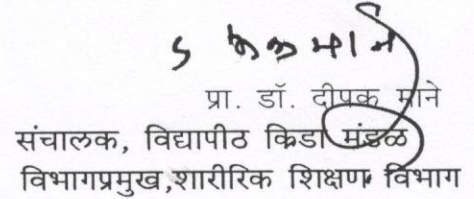 प्रा. डॉ. दीपक माने
संचालक, विद्यापीठ क्रिडा मंडळ
विभागप्रमुख,शारीरिक शिक्षण विभाग